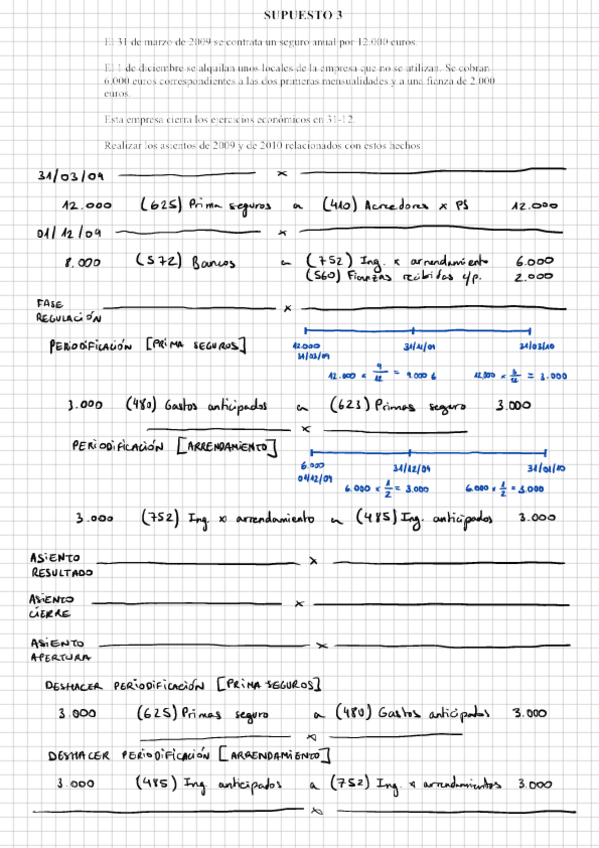 SUPUESTO 3
El 31 de marzo de 2009 se contrata un seguro anual por 12.000 euros.
El 1 de diciembre se alquilan unos locales de la empresa que no se utilizan. Se cobran
6.000 euros correspondientes a las dos primeras mensualidades y a una fianza de 2.000
euros.
Esta empresa cierra los ejercicios económicos en 31-12.
Realizar los asientos de 2009 y de 2010 relacionados con estos hechos
31/03/09 x
12.000 (625) Prima seguros a (410) Acreedores x PS 12.000
01/12/09 x
8.000 (572) Bancos a (752) Ing. x arrendamiento 6.000
(560) Fianzas recibidas c/p. 2.000
FASE
REGULACIÓN x
PERIODIFICACIÓN [PRIMA SEGUROS]
12.000 31/12/09 31/03/10
31/03/09
12.000 x 9/12 = 9.000 € 12.000 x 3/12 = 3.000
3.000 (480) Gastos anticipados a (623) Primas seguro 3.000
x
PERIODIFICACIÓN [ARRENDAMIENTO]
6.000 31/12/09 31/01/10
01/12/09
6.000 x 1/2 = 3.000 6.000 x 1/2 = 3.000
3.000 (752) Ing x arrendamiento a (485) Ing. anticipados 3.000
ASIENTO
RESULTADO x
ASIENTO
CIERRE x
ASIENTO
APERTURA x
DESHACER PERIODIFICACIÓN [PRIMA SEGUROS]
3.000 (625) Primas seguro a (480) Gastos anticipados 3.000
x
DESHACER PERIODIFICACIÓN [ARRENDAMIENTO]
3.000 (485) Ing. anticipados a (752) Ing. x arrendamientos 3.000
x